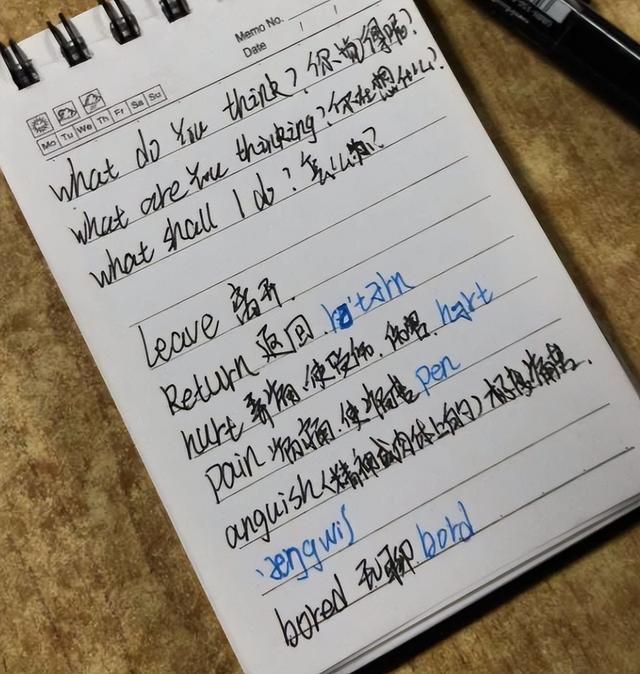 Memo No.
Date / /
Mo Tu We Th Fr Sa Su
what do you think? 你觉得呢?
what are you thinking? 你在想什么?
what shall I do? 怎么办?
Leave 离开.
Return 返回. rɪ'tɜrn
hurt 弄痛.使受伤.伤害 hɜrt
pain 疼痛.使痛苦 pen
anguish(精神或肉体上的)极度痛苦.
'æŋgwɪʃ
bored 无聊 bɔrd